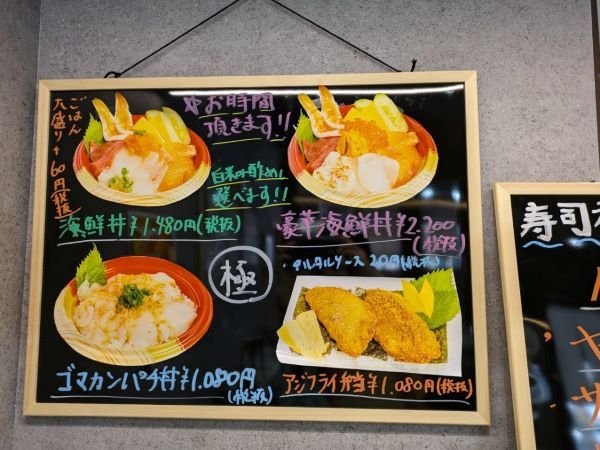 ごはん
大盛り+60円(税抜)
※お時間
頂きます!!
白米or酢めし
選べます!!
海鮮丼¥1.480円(税抜)
豪華海鮮丼¥2.200
(税抜)
極
・タルタルソース 20円(税抜)
ゴマカンパチ丼¥1.080円
(税抜)
アジフライ弁当¥1.080円(税抜)
寿司